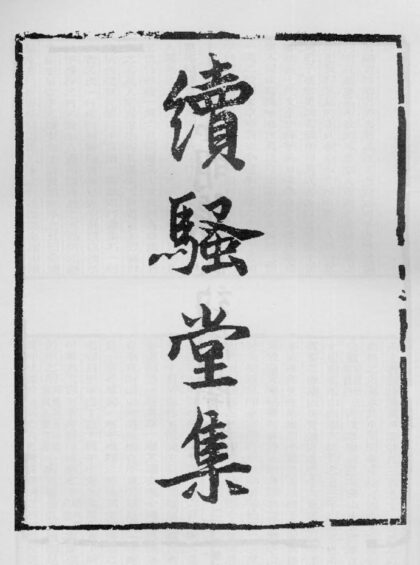 續騷堂集